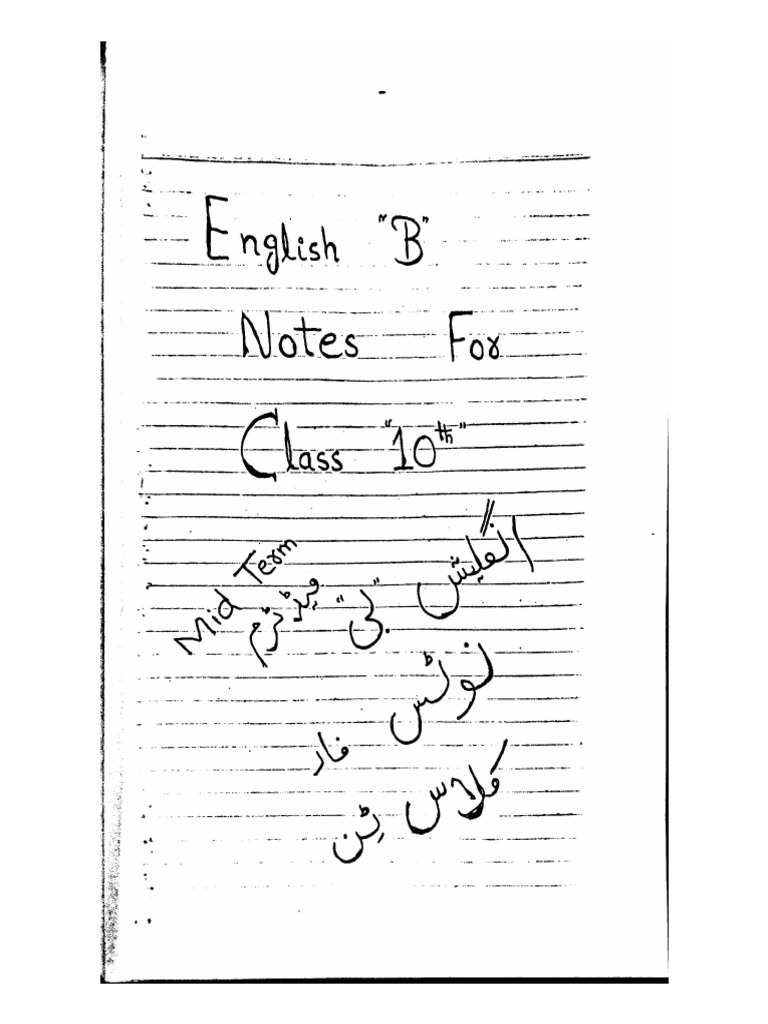 English "B"
Notes For
Class "10th"
Mid Term
انگلیش "بی" میڈ ٹرم
نوٹس فار
کلاس ٹن